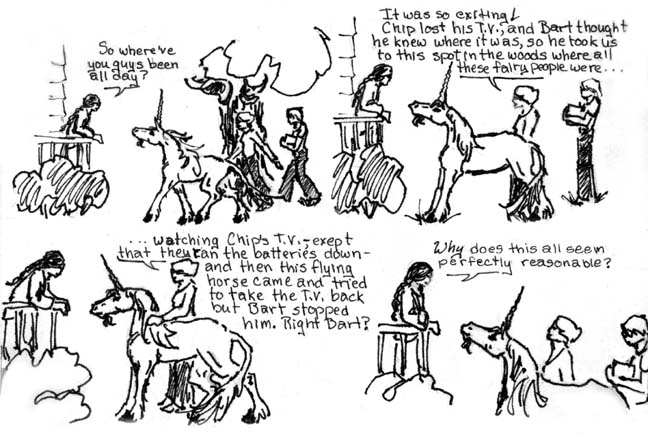 So where've
you guys been
all day?
It was so exiting!
Chip lost his T.V., and Bart thought
he knew where it was, so he took us
to this spot in the woods where all
these fairy people were...
...watching Chip's T.V.-exept
that they ran the batteries down-
and then this flying
horse came and tried
to take the T.V. back
but Bart stopped
him. Right Bart?
Why does this all seem
perfectly reasonable?